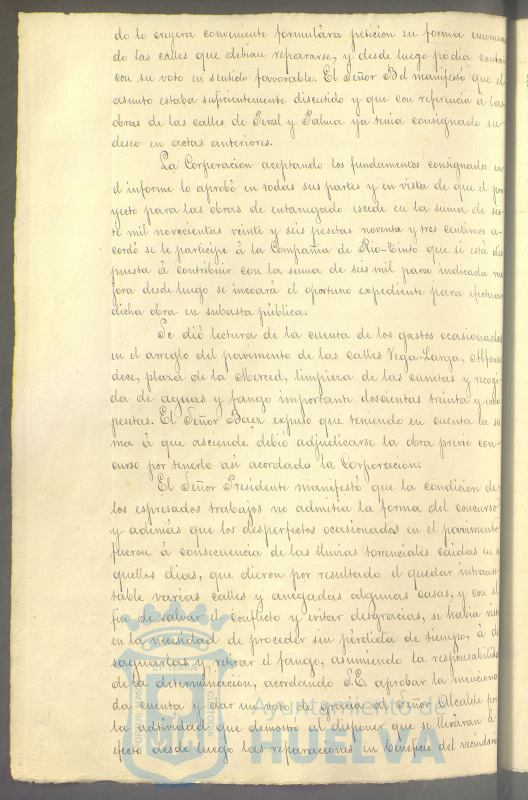 do lo creyera conveniente formulára peticion en forma enumeran
do las calles que debian repararse, y desde luego podia contar
con su voto en sentido favorable. El Señor Bel manifestó que el
asunto estaba suficientemente discutido y que con referencia á las
obras de las calles de Peral y Palma ya tenia consignado su
deseo en actas anteriores.
La Corporacion aceptando los fundamentos consignados en
el informe lo aprobó en todas sus partes y en vista de que el pro
yecto para las obras de entarugado escede en la suma de sie
te mil novecientas veinte y seis pesetas noventa y tres centimos a-
cordó se le participe á la Compañia de Rio-Tinto que si está dis
puesta á contribuir con la suma de seis mil para indicada me
jora desde luego se incoará el oportuno expediente para efectuar
dicha obra en subasta pública.
Se dió lectura de la cuenta de los gastos ocasionados
en el arreglo del pavimento de las calles Vega-Larga, Alfonso
doce, plaza de la Merced, limpieza de las cunetas y recogi
da de aguas y fango importante doscientas treinta y ocho
pesetas. El Señor Baez expuso que teniendo en cuenta la su
ma á que asciende debió adjudicarse la obra previo con-
curso por tenerlo asi acordado la Corporacion.
El Señor Presidente manifestó que la condicion de
los espresados trabajos no admitia la forma del concurso
y además que los desperfectos ocasionados en el pavimento
fueron á consecuencia de las lluvias torrenciales caidas en a
quellos dias, que dieron por resultado el quedar intransi
table varias calles y anegadas algunas casas, y con el
fin de salvar el conflicto y evitar desgracias, se habia visto
en la necesidad de proceder sin pérdida de tiempo, á de
saguarlas y retirar el fango, asumiendo la responsabilidad
de la determinacion, acordando S.E. aprobar la menciona
da cuenta y dar un voto de gracia al Señor Alcalde por
la actividad que demostró al disponer que se lleváran á
efecto desde luego las reparaciones en beneficio del vecindario
Ayuntamiento de
HUELVA